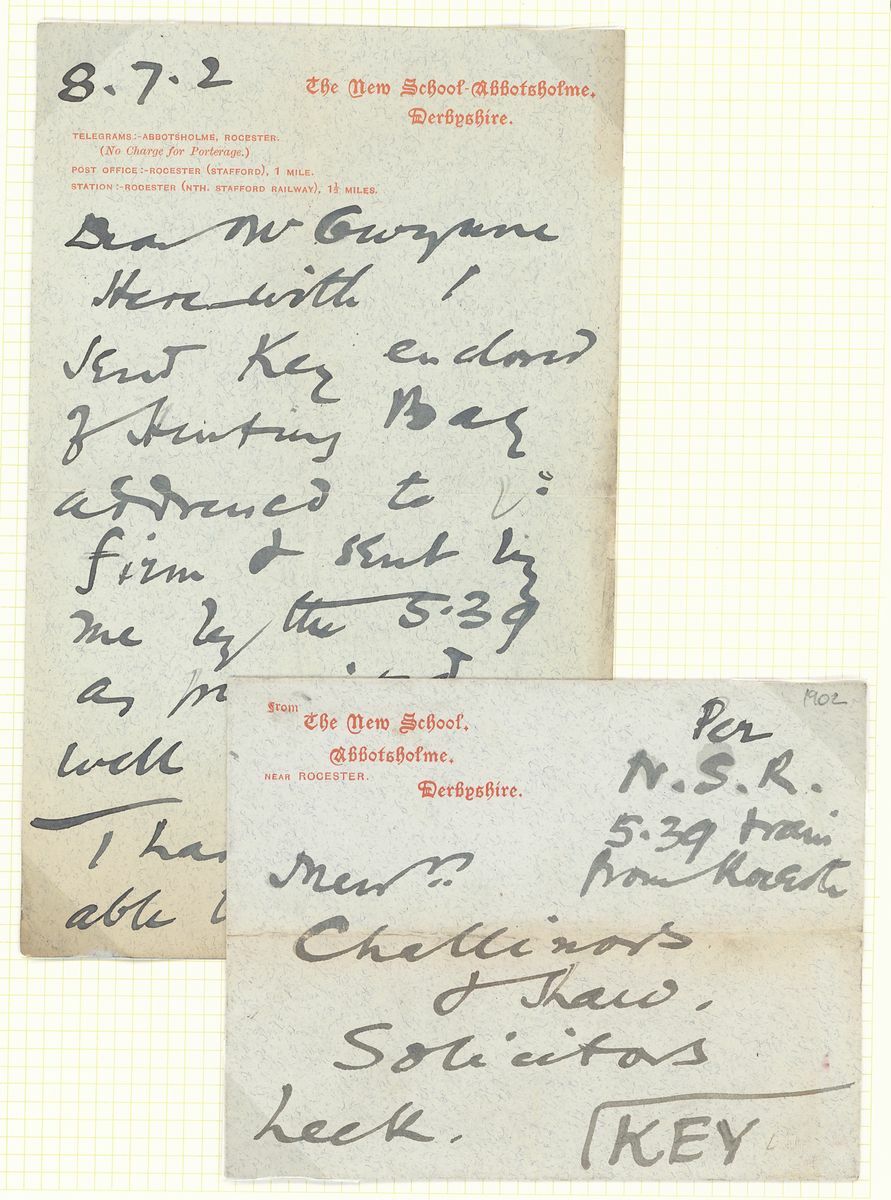 8.7.2
The New School-Abbotsholme,
Derbyshire.
TELEGRAMS:-ABBOTSHOLME, ROCESTER.
(No Charge for Porterage.)
POST OFFICE:-ROCESTER (STAFFORD), 1 MILE.
STATION:-ROCESTER (NTH. STAFFORD RAILWAY), 1½ MILES.
Dear Mr Gwynne
Herewith I
send Key enclosed
of Hunting Bag
addressed to
firm & sent by
me by the 5.39
as
well
I
able
1902
From
The New School,
Abbotsholme,
NEAR ROCESTER.
Derbyshire.
Per
N.S.R.
5.39 train
from Rocester
Messrs
Challinors
& Shaw,
Solicitors
Leek.
KEY